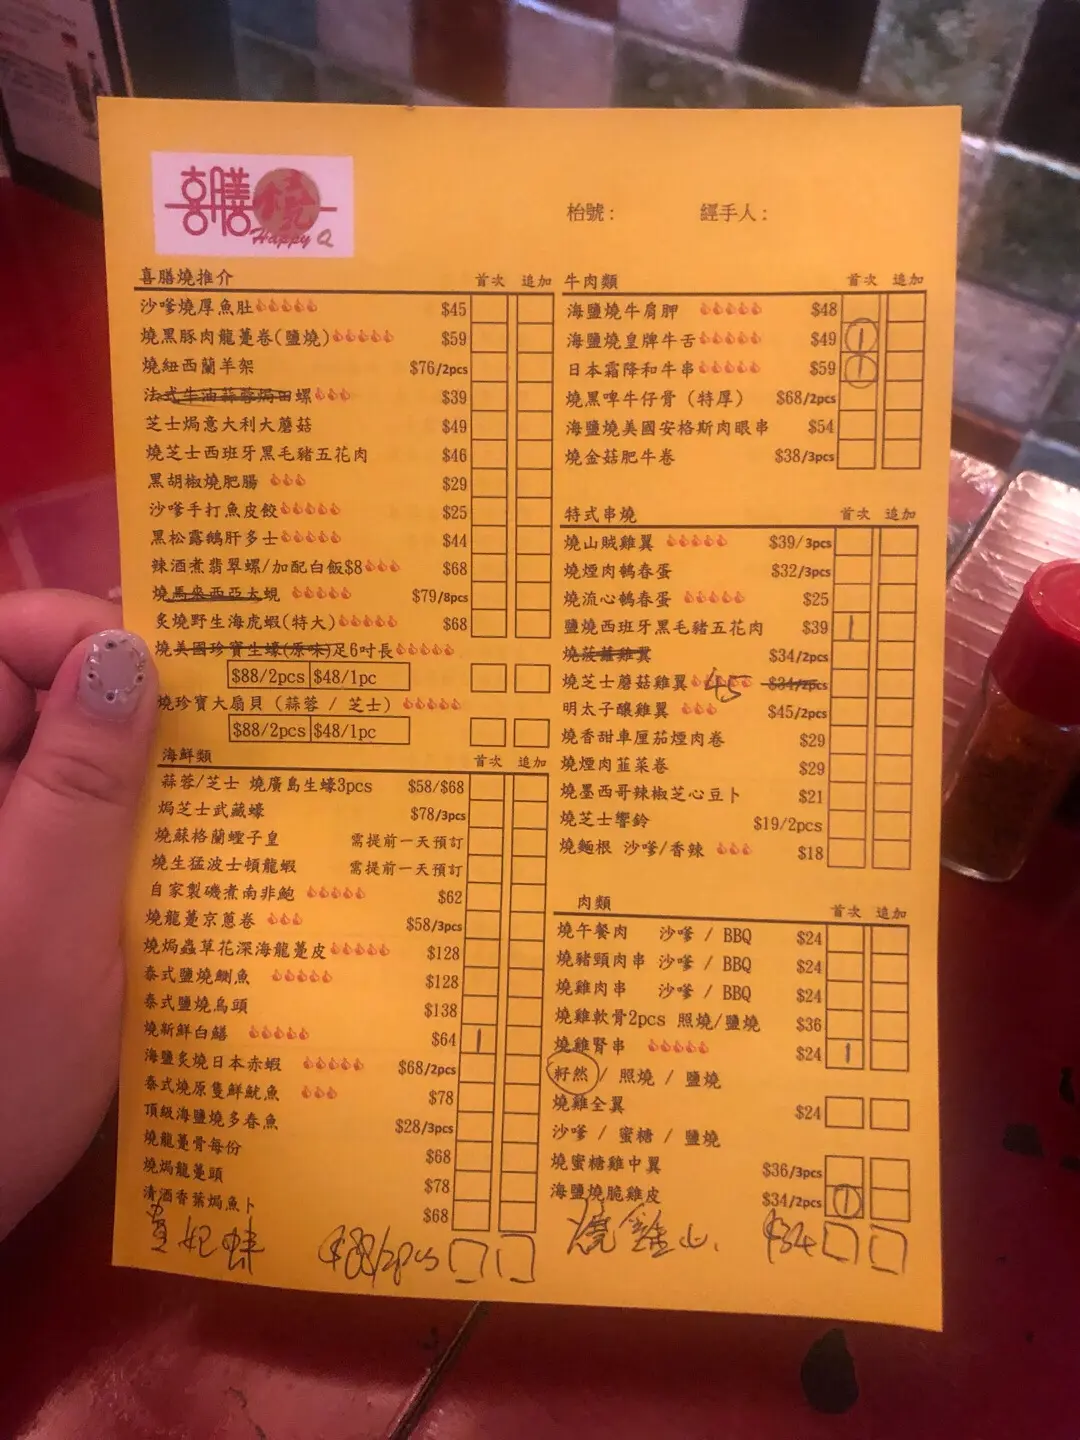 喜膳燒
Happy Q
枱號： 經手人：
喜膳燒推介 首次 追加
沙爹燒厚魚肚 $45
燒黑豚肉龍躉卷(鹽燒) $59
燒紐西蘭羊架 $76/2pcs
法式牛油蒜蓉焗田螺 $39
芝士焗意大利大蘑菇 $49
燒芝士西班牙黑毛豬五花肉 $46
黑胡椒燒肥腸 $29
沙爹手打魚皮餃 $25
黑松露鵝肝多士 $44
辣酒煮翡翠螺/加配白飯$8 $68
燒馬來西亞大蜆 $79/8pcs
炙燒野生海虎蝦(特大) $68
燒美國珍寶生蠔(原味)足6吋長
$88/2pcs $48/1pc
燒珍寶大扇貝 (蒜蓉 / 芝士)
$88/2pcs $48/1pc
海鮮類 首次 追加
蒜蓉/芝士 燒廣島生蠔3pcs $58/$68
焗芝士武藏蠔 $78/3pcs
燒蘇格蘭蟶子皇 需提前一天預訂
燒生猛波士頓龍蝦 需提前一天預訂
自家製磯煮南非鮑 $62
燒龍躉京蔥卷 $58/3pcs
燒焗蟲草花深海龍躉皮 $128
泰式鹽燒鰂魚 $128
泰式鹽燒烏頭 $138
燒新鮮白鱔 $64 1
海鹽炙燒日本赤蝦 $68/2pcs
泰式燒原隻鮮魷魚 $78
頂級海鹽燒多春魚 $28/3pcs
燒龍躉骨每份 $68
燒焗龍躉頭 $78
清酒香葉焗魚卜 $68
貴妃蚌 $88/2pcs
牛肉類 首次 追加
海鹽燒牛肩胛 $48
海鹽燒皇牌牛舌 $49 1
日本霜降和牛串 $59 1
燒黑啤牛仔骨 (特厚) $68/2pcs
海鹽燒美國安格斯肉眼串 $54
燒金菇肥牛卷 $38/3pcs
特式串燒 首次 追加
燒山賊雞翼 $39/3pcs
燒煙肉鵪春蛋 $32/3pcs
燒流心鵪春蛋 $25
鹽燒西班牙黑毛豬五花肉 $39 1
燒菠蘿雞翼 $34/2pcs
燒芝士蘑菇雞翼 45 $34/2pcs
明太子釀雞翼 $45/2pcs
燒香甜車厘茄煙肉卷 $29
燒煙肉韮菜卷 $29
燒墨西哥辣椒芝心豆卜 $21
燒芝士響鈴 $19/2pcs
燒麵根 沙爹/香辣 $18
肉類 首次 追加
燒午餐肉 沙爹 / BBQ $24
燒豬頸肉串 沙爹 / BBQ $24
燒雞肉串 沙爹 / BBQ $24
燒雞軟骨2pcs 照燒/鹽燒 $36
燒雞腎串 $24 1
籽然 / 照燒 / 鹽燒
燒雞全翼 $24
沙爹 / 蜜糖 / 鹽燒
燒蜜糖雞中翼 $36/3pcs
海鹽燒脆雞皮 $34/2pcs 1
燒雞 $34